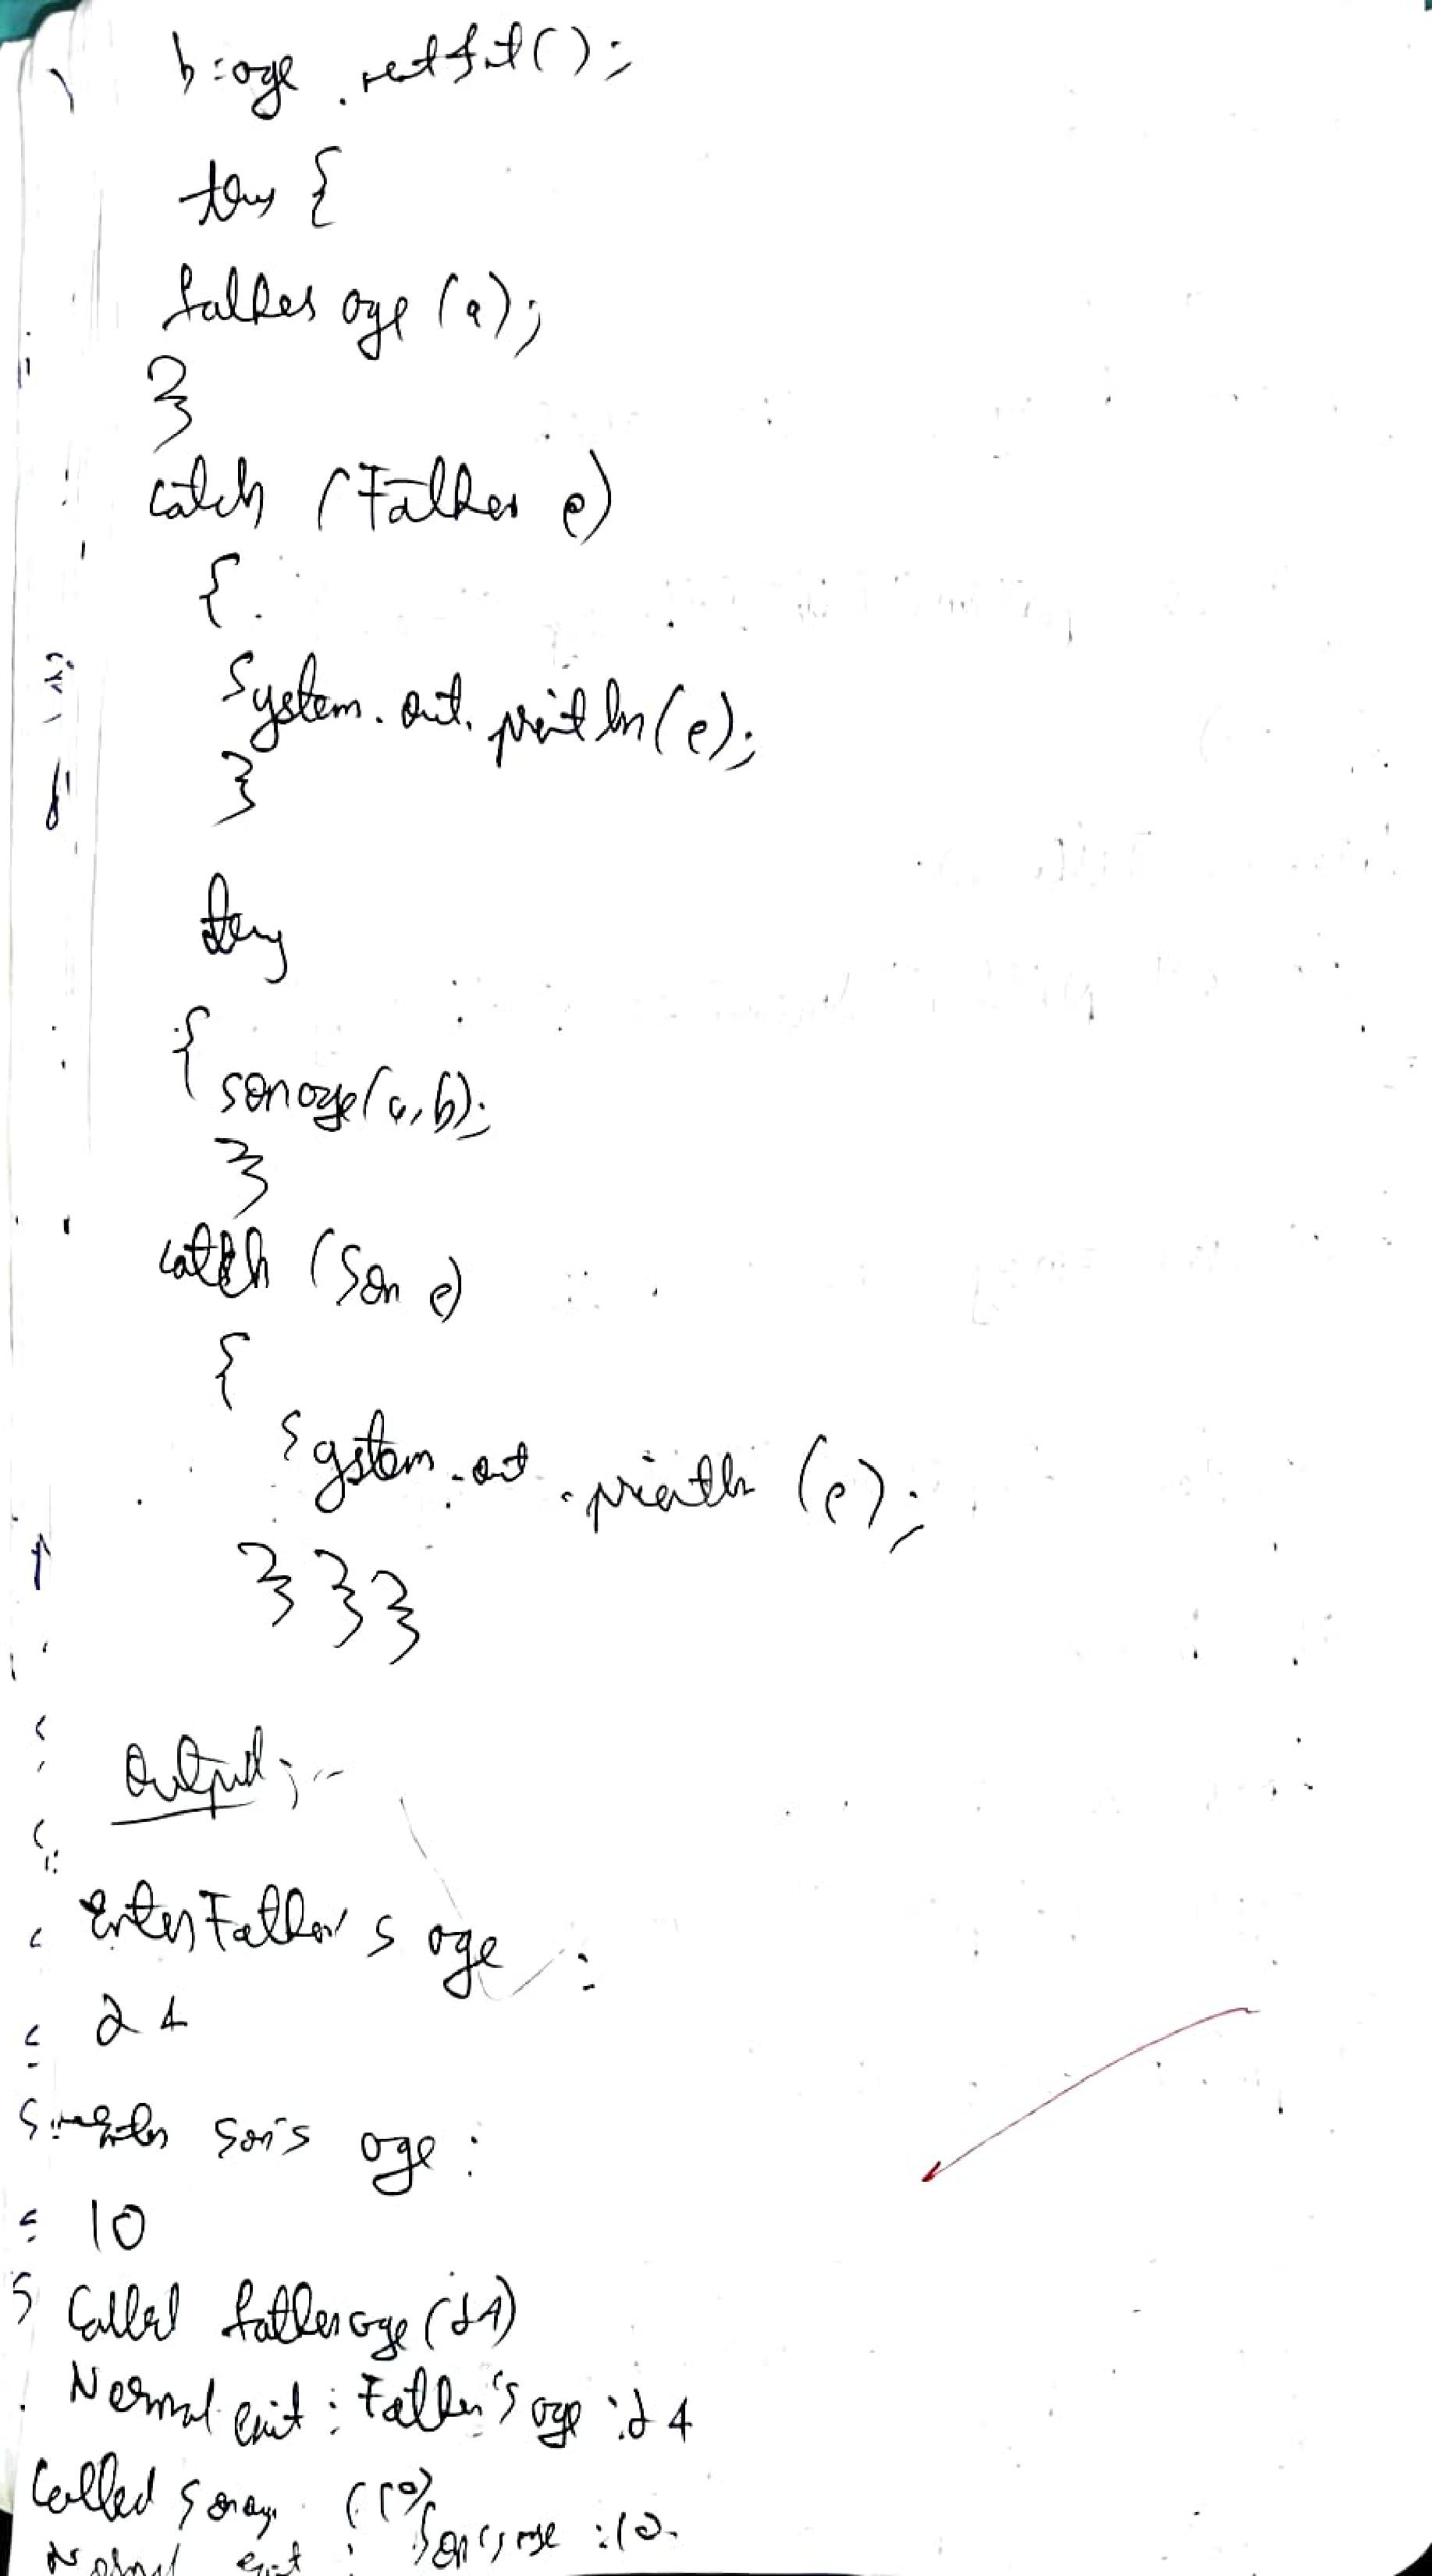 b=age.nextInt();
try {
fatherage(a);
}
catch (Father e)
{
System.out.println(e);
}
try
{
sonage(a,b);
}
catch (Son e)
{
System.out.println(e);
}}}
Output:-
Enter Father's age :
24
Enter Son's age :
10
Called fatherage(24)
Normal exit : Father's age : 24
Called sonage (10)
Normal exit : Son's age : 10.